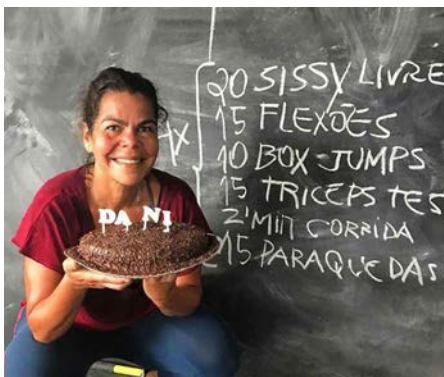 20 SISSY LIVRE
15 FLEXÕES
4X
10 BOX-JUMPS
15 TRICEPS TES
2' MIIT CORRIDA
15 PARAQUEDAS
DANI